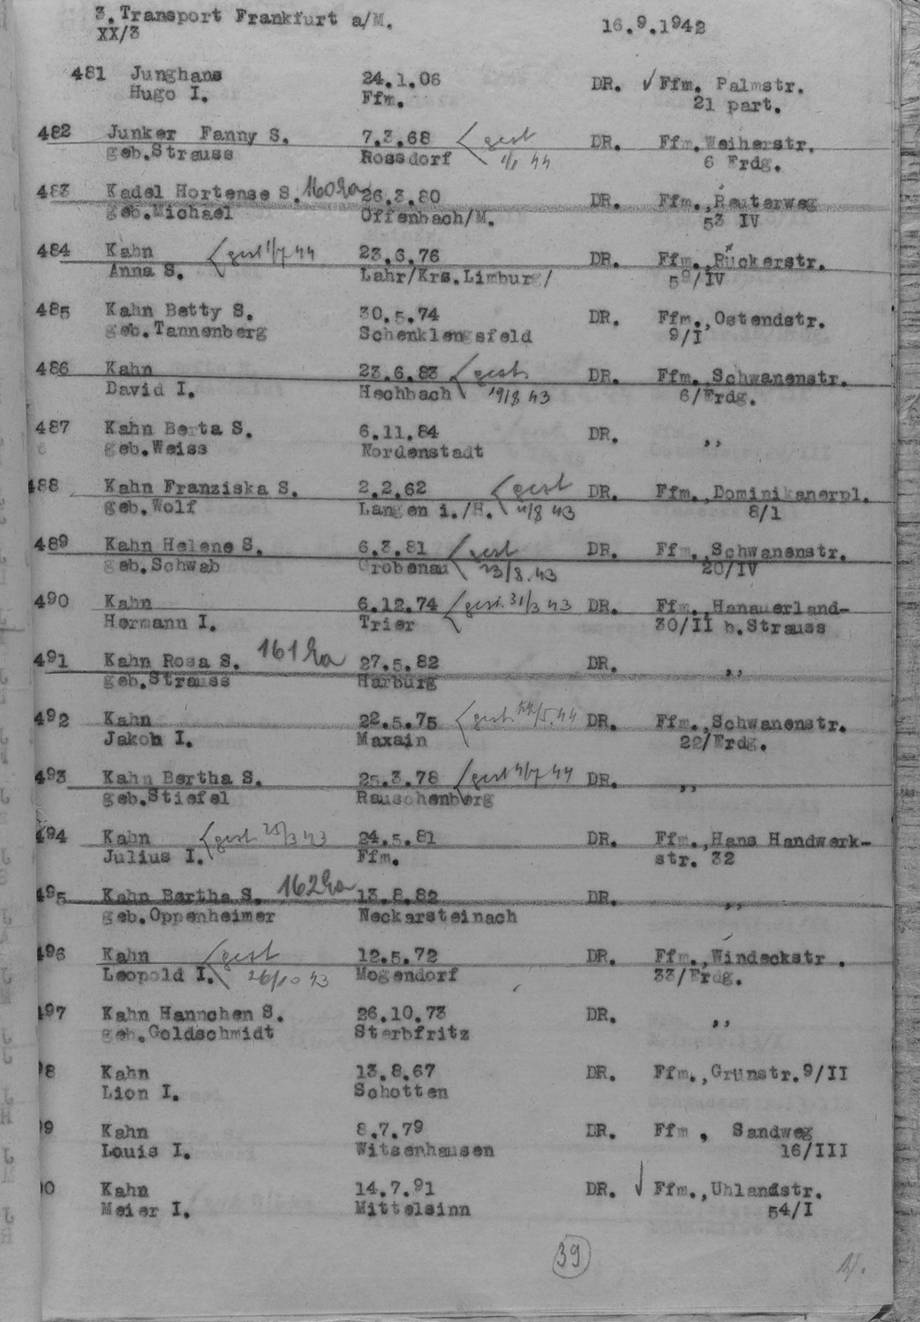 3. Transport Frankfurt a/M. 16.9.1942
XX/3
481 Junghans 24.1.06 DR. ✓ Ffm. Palmstr.
Hugo I. Ffm. 21 part.
482 Junker Fanny S. 7.3.68 gest DR. Ffm. Weiherstr.
geb.Strauss Rossdorf 44 6 Frdg.
483 Kadel Hortense S. 160 26.3.80 DR. Ffm., Reuterweg
geb.Michael Offenbach/M. 53 IV
484 Kahn gest 1/7 44 23.6.76 DR. Ffm., Rückerstr.
Anna S. Lahr/Krs.Limburg/ /IV
485 Kahn Betty S. 30.5.74 DR. Ffm.,Ostendstr.
geb.Tannenberg Schenklengsfeld 9/I
486 Kahn 23.6.83 gest. DR. Ffm., Schwanenstr.
David I. Hechbach 19/8 43 6/Frdg.
487 Kahn Berta S. 6.11.84 DR. ,,
geb.Weiss Nordenstadt
488 Kahn Franziska S. 2.2.62 gest DR. Ffm.,Dominikanerpl.
geb.Wolf Langen i./H. /8 43 8/1
489 Kahn Helene S. 6.3.81 gest DR. Ffm.,Schwanenstr.
geb.Schwab Grobenau 23/8.43 20/IV
490 Kahn 6.12.74 gest. 31/3 43 DR. Ffm.,Hanauerland-
Hermann I. Trier 30/II b.Strauss
491 Kahn Rosa S. 161 27.5.82 DR. ,,
geb.Strauss Harburg
492 Kahn 22.5.75 gest. /5.44 DR. Ffm.,Schwanenstr.
Jakob I. Maxain 22/Frdg.
493 Kahn Bertha S. 25.3.78 gest 4/7 44 DR. ,,
geb.Stiefel Rauschenberg
494 Kahn gest 25/3 43 24.5.81 DR. Ffm.,Hans Handwerk-
Julius I. Ffm. str. 32
495 Kahn Bertha S. 162 13.8.82 DR. ,,
geb.Oppenheimer Neckarsteinach
496 Kahn gest 12.5.72 DR. Ffm.,Windeckstr.
Leopold I. 26/10 43 Mogendorf 33/Frdg.
497 Kahn Hannchen S. 26.10.73 DR. ,,
geb.Goldschmidt Sterbfritz
8 Kahn 13.8.67 DR. Ffm.,Grünstr.9/II
Lion I. Schotten
9 Kahn 8.7.79 DR. Ffm, Sandweg
Louis I. Witzenhausen 16/III
0 Kahn 14.7.91 DR. ✓ Ffm.,Uhlandstr.
Meier I. Mittelsinn 54/I
39